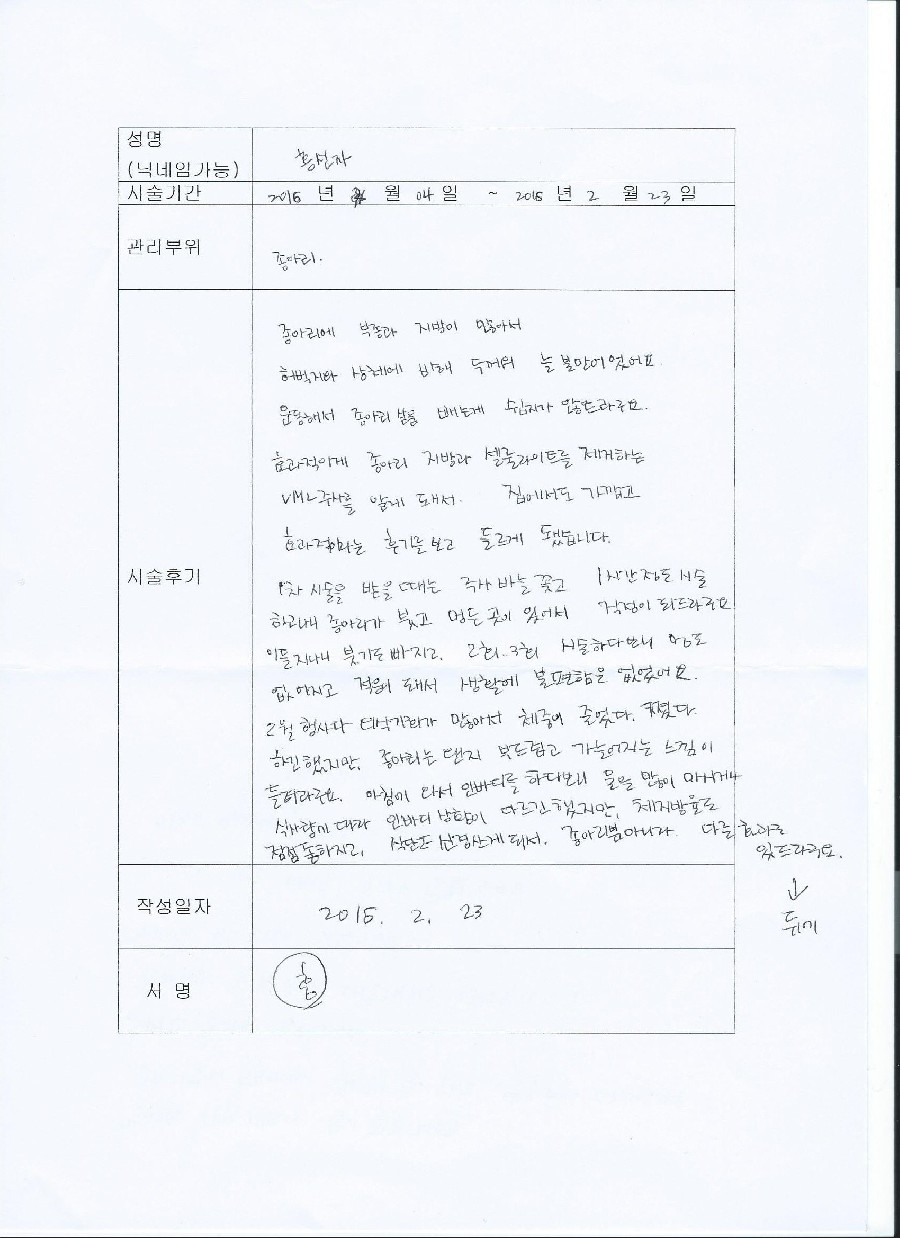 성명
(닉네임가능)
시술기간 2015 년 월 04 일 ~ 2015 년 2 월 23 일
관리부위 종아리.
종아리에 부종과 지방이 많아서
허벅지와 상체에 비해 두꺼워 늘 불만이었어요.
운동해서 종아리 살을 빼는게 쉽지가 않드라구요.
효과적이게 종아리 지방과 셀룰라이트를 제거하는
VML주사를 알게 돼서. 집에서도 가깝고
효과적이라는 후기를 보고 들르게 됐습니다.
시술후기
1차 시술을 받을 때는 주사 바늘 꽂고 1시간정도 시술
하고나니 종아리가 붓고 멍든 곳이 있어서 걱정이 되드라구요
이틀지나니 붓기도 빠지고. 2회. 3회 시술하다보니 멍도
없어지고 적응이 돼서 생활에 불편함은 없었어요.
2월 행사다 많아서 체중이 줄었다. 쪘다.
하긴했지만, 종아리는 왠지 부드럽고 가늘어지는 느낌이
들더라구요. 아침에 와서 인바디를 하다보니 물을 많이 마시거나
식사량에 따라 인바디 상황이 다르긴 했지만, 체지방율도
점점 식단도 신경쓰게 돼서. 종아리뿐아니라. 다른 효과도
있드라구요.
↓
뒤에
작성일자 2015. 2. 23
서 명 홍